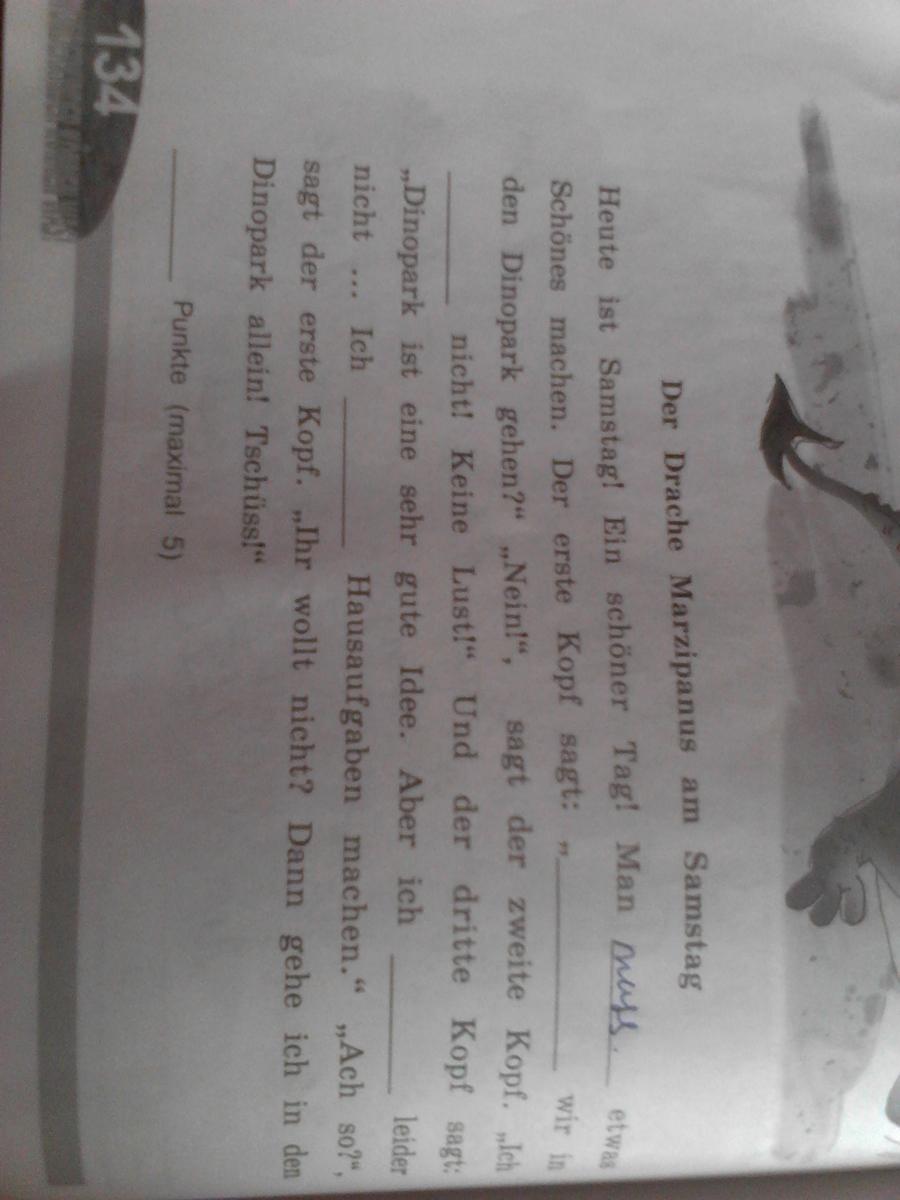 Der Drache Marzipanus am Samstag
Heute ist Samstag! Ein schöner Tag! Man muss etwas
Schönes machen. Der erste Kopf sagt: „__________ wir in
den Dinopark gehen?“ „Nein!“, sagt der zweite Kopf. „Ich
________ nicht! Keine Lust!“ Und der dritte Kopf sagt:
„Dinopark ist eine sehr gute Idee. Aber ich ________ leider
nicht ... Ich ________ Hausaufgaben machen.“ „Ach so?“,
sagt der erste Kopf. „Ihr wollt nicht? Dann gehe ich in den
Dinopark allein! Tschüss!“
________ Punkte (maximal 5)
134